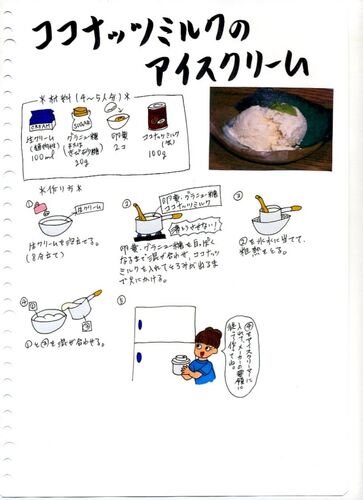 ココナッツミルクの
アイスクリーム
*材料(4～5人分)*
CREAM
SUGAR
生クリーム
(植物性)
100ml
グラニュー糖
または
きび砂糖
30g
卵黄
2コ
ココナッツミルク
(缶)
100g
*作り方*
①
生クリーム
生クリームを泡立てる。
(8分立て)
②
卵黄・グラニュー糖
ココナッツミルク
沸とうさせない!
卵黄、グラニュー糖を白っぽく
なるまで混ぜ合わせ、ココナッツ
ミルクを入れてとろみが出るま
で火にかける。
③
②を氷水に当てて、
粗熱をとる。
④
①
③
①と③を混ぜ合わせる。
⑤
④をアイスクリーマーに
入れて、メーカーの要領に
従って作る。